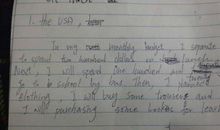 1. the USA,
In my monthly budget, I separate
to spend two hundred dollars on
Next, I will spend one hundred and
to go to school by bus. Then, I
clothing, I will buy some trousers and
I will purchasing some books for